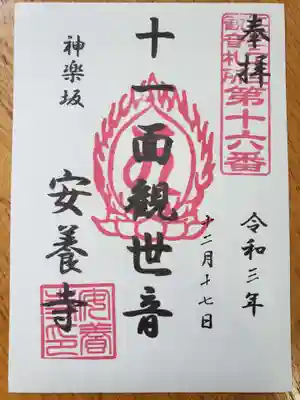 奉拝
観音札所
第十六番
令和三年
十二月十七日
十一面観世音
神楽坂
安養寺